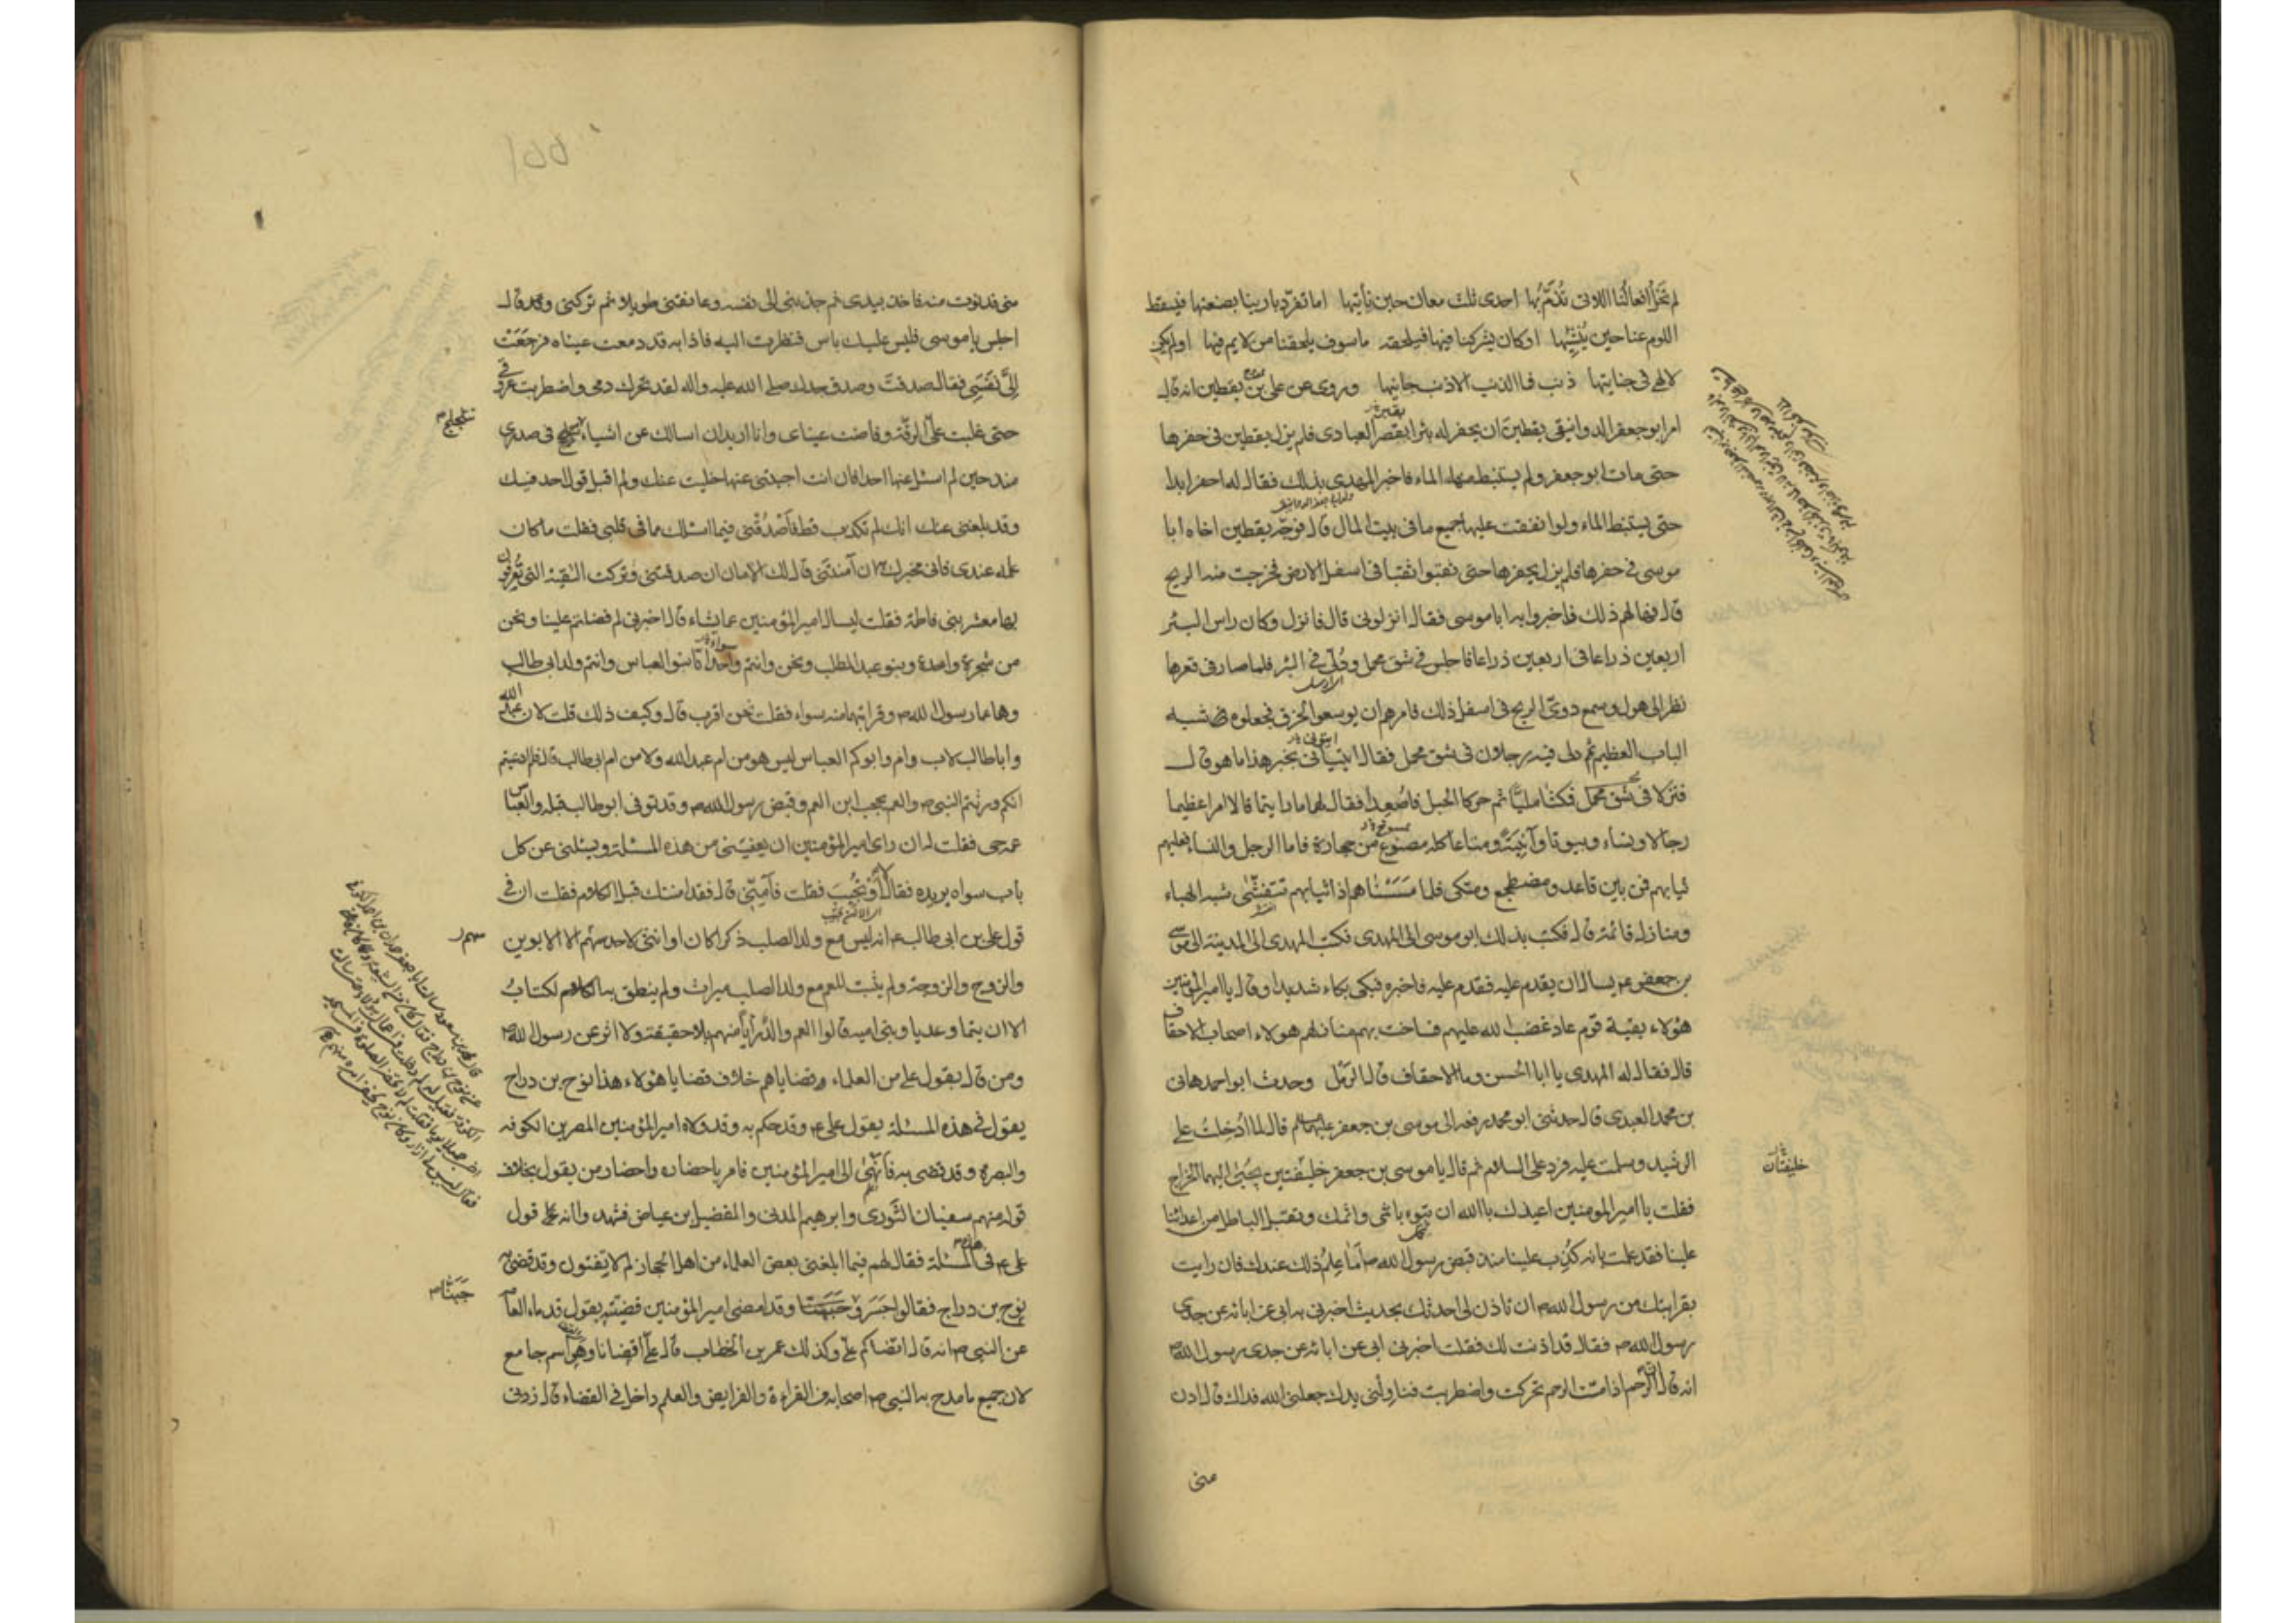 لم تخل افعالنا اللاتى نذم بها احدى ثلث معان حين نأتيها اما تفرد بارينا بصنعتها فيسقط
اللوم عنا حين ننشيها او كان يشركنا فيها فيلحقه ما سوف يلحقنا من لايم فيها او لم يكن
لالهى فى جنايتها ذنب فما الذنب الا ذنب جانيها وروى عن على بن يقطين انه قال
امر ابو جعفر الدوانيقى يقطين ان يحفر له بئرا بقصر العبادى فلم يزل يقطين فى حفرها
حتى مات ابو جعفر ولم يستنبط منها الماء فاخبر المهدى بذلك فقال له احفر ابدا
حتى يستنبط الماء ولو انفقت عليها جميع ما فى بيت المال قال فوجه يقطين اخاه ابا
موسى فى حفرها فلم يزل يحفرها حتى نقبوا نقبا فى اسفل الارض فخرجت منه الريح
قال فهالهم ذلك فاخبروا به ابا موسى فقال انزلونى قال فانزل وكان راس البئر
اربعين ذراعا فى اربعين ذراعا فاجلس فى شق محمل ودلى فى البئر فلما صار فى قعرها
نظر الى هول وسمع دوى الريح فى اسفل ذلك فامرهم ان يوسعوا الخرق فجعلوه شبه
الباب العظيم ثم دلى فيه رجلان فى شق محمل فقال ايتيانى بخبر هذا ما هو قال
فنزلا فى شق محمل فمكثا مليا ثم حركا الحبل فاصعدا فقال لهما ما رايتما قالا امرا عظيما
رجالا ونساء وبيوتا وآنية ومتاعا كله مصنوع من حجارة فاما الرجل والنسا فعليهم
ثيابهم فمن بين قاعد ومضطجع ومتكى فلما مسسناهم اذا ثيابهم تتفشى شبه الهباء
ومنازل قائمة قال فكتب بذلك ابو موسى الى المهدى فكتب المهدى الى المدينة الى موسى
بن جعفر يساله ان يقدم عليه فقدم عليه فاخبره فبكى بكاء شديدا وقال يا امير المؤمنين
هؤلاء بقية قوم عاد غضب الله عليهم فساخت بهم منازلهم هولاء اصحاب الاحقاف
قال فقال له المهدى يا ابا الحسن وما الاحقاف قال الرمل وحدث ابو احمد هانى
بن محمد العبدى قال حدثنى ابو محمد رفعه الى موسى بن جعفر قال لما ادخلت على
الرشيد وسلمت عليه فرد على السلام ثم قال يا موسى بن جعفر خليفتين يجبى اليهما الخراج
خليفتان
فقلت يا امير المومنين اعيذك بالله ان تبوء باثمى واثمك وتقبل الباطل من اعدائنا
علينا فقد علمت بانه كذب علينا منذ قبض رسول الله ص اما علم ذلك عندك فان رايت
بقرابتك من رسول الله ص ان تاذن لى احدثك بحديث اخبرنى به ابى عن ابائه عن جدى
رسول الله ص فقال قد اذنت لك فقلت اخبرنى ابى عن ابائه عن جدى رسول الله ص
انه قال الرحم اذا مست الرحم تحركت واضطربت فناولنى يدك جعلنى الله فداك قال ادن
منى
١٥٥
منى فدنوت منه فاخذ بيدى ثم جذبنى الى نفسه وعانقنى طويلا ثم تركنى وقال
اجلس يا موسى فليس عليك باس فنظرت اليه فاذا به قد دمعت عيناه فرجعت
الى نفسى فقال صدقت وصدق جدك صلى الله عليه واله لقد تحرك دمى واضطربت عروقى
حتى غلبت على الرقة وفاضت عيناى وانا اريد ان اسالك عن اشياء تتلجلج فى صدرى
تتلجلج
منذ حين لم اسئل عنها احدا فان انت اجبتنى عنها خليت عنك ولم اقبل قول احد فيك
وقد بلغنى عنك انك لم تكذب قط فاصدقنى فيما اسئلك ما فى قلبى فقلت ما كان
علمه عندى فانى مخبرك به ان آمنتنى قال لك الامان ان صدقتنى وتركت التقية التى تعرفون
بها معشر بنى فاطمة فقلت ليسال امير المؤمنين عما يشاء قال اخبرنى لم فضلتم علينا ونحن
من شجرة واحدة وبنو عبد المطلب ونحن وانتم واحد انا بنو العباس وانتم ولد ابى طالب
وهما عما رسول الله ص وقرابتهما منه سواء فقلت نحن اقرب قال وكيف ذلك قلت لان عبد الله
وابا طالب لاب وام وابوكم العباس ليس هو من ام عبد الله ولا من ام ابى طالب قال فلم ادعيتم
انكم ورثتم النبى ص والعم يحجب ابن العم وقبض رسول الله ص وقد توفى ابو طالب قبله والعباس
عمه حى فقلت له ان راى امير المؤمنين ان يعفينى من هذه المسئلة ويسئلنى عن كل
باب سواه يريده فقال لا او تجيب فقلت فآمنى قال فقد امنتك قبل الكلام فقلت ان فى
قول على بن ابى طالب ع انه ليس مع ولد الصلب ذكرا كان او انثى لاحد سهم الا للابوين
سهم
والزوج والزوجة ولم يثبت للعم مع ولد الصلب ميراث ولم ينطق به الكتاب
الا ان تيما وعديا وبنى امية قالوا العم والد رأيا منهم بلا حقيقة ولا اثر عن رسول الله ص
ومن قال بقول على من العلماء قضاياهم خلاف قضايا هؤلاء هذا نوح بن دراج
يقول فى هذه المسئلة بقول على ع وقد حكم به وقد ولاه امير المؤمنين المصرين الكوفه
والبصرة وقد قضى به فانهى الى امير المؤمنين فامر باحضاره واحضار من يقول بخلاف
قوله منهم سفيان الثورى وابرهيم المدنى والفضيل بن عياض فشهدوا انه قول
على ع فى هذه المسئلة فقال لهم فيما ابلغنى بعض العلماء من اهل الحجاز لم لا تفتون وقد قضى به
نوح بن دراج فقالوا جسر وجبنا وقد امضى امير المؤمنين قضيته بقول قدماء العامة
جبنا
عن النبى ص انه قال اقضاكم على وكذلك عمر بن الخطاب قال على اقضانا وهو اسم جامع
لان جميع ما مدح به النبى ص اصحابه من القراءة والفرايض والعلم داخل فى القضاء قال زدنى